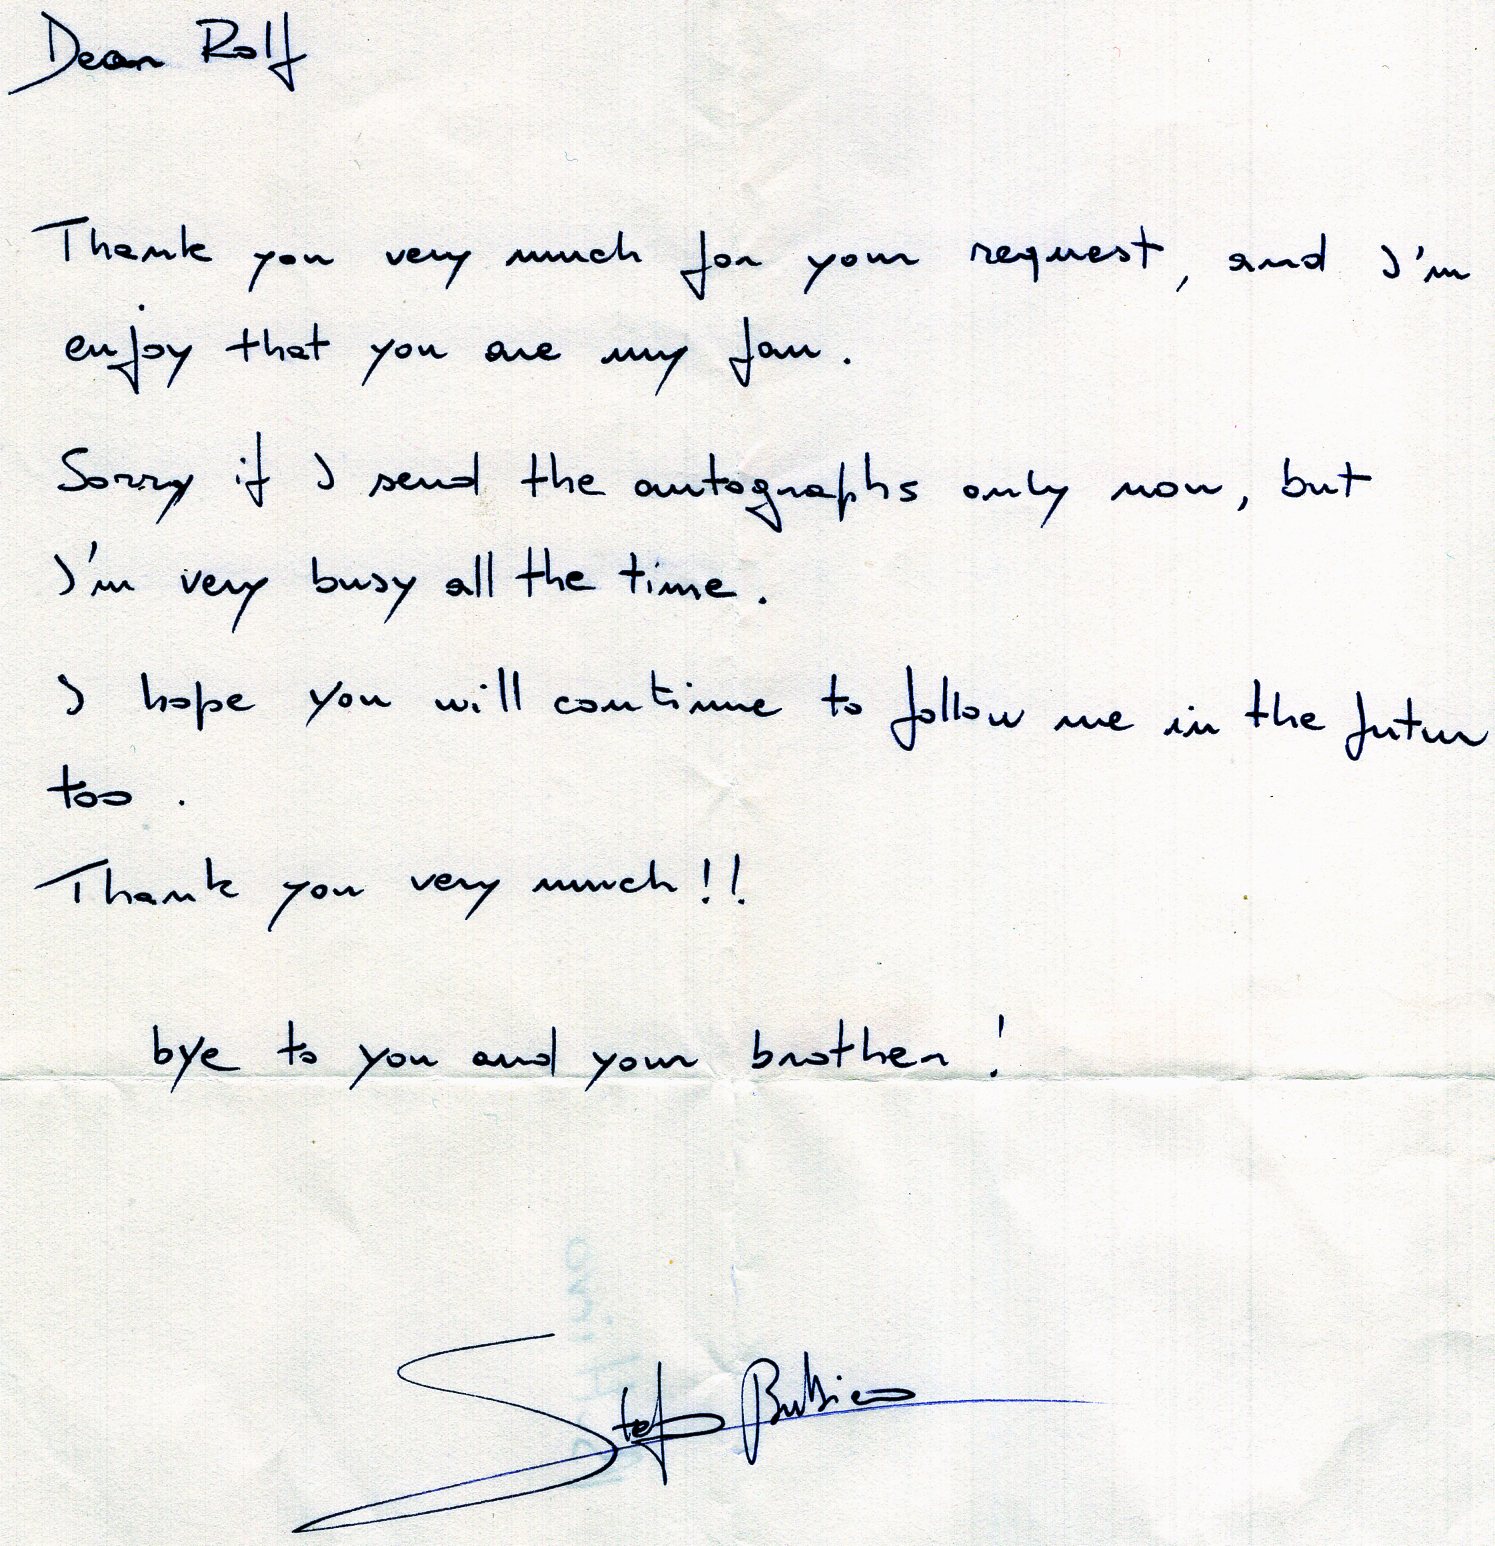 Dear Rolf
Thank you very much for your request, and I'm
enjoy that you are my fan.
Sorry if I send the autographs only now, but
I'm very busy all the time.
I hope you will continue to follow me in the futur
too.
Thank you very much!!
bye to you and your brother!
Stefano Bubbico